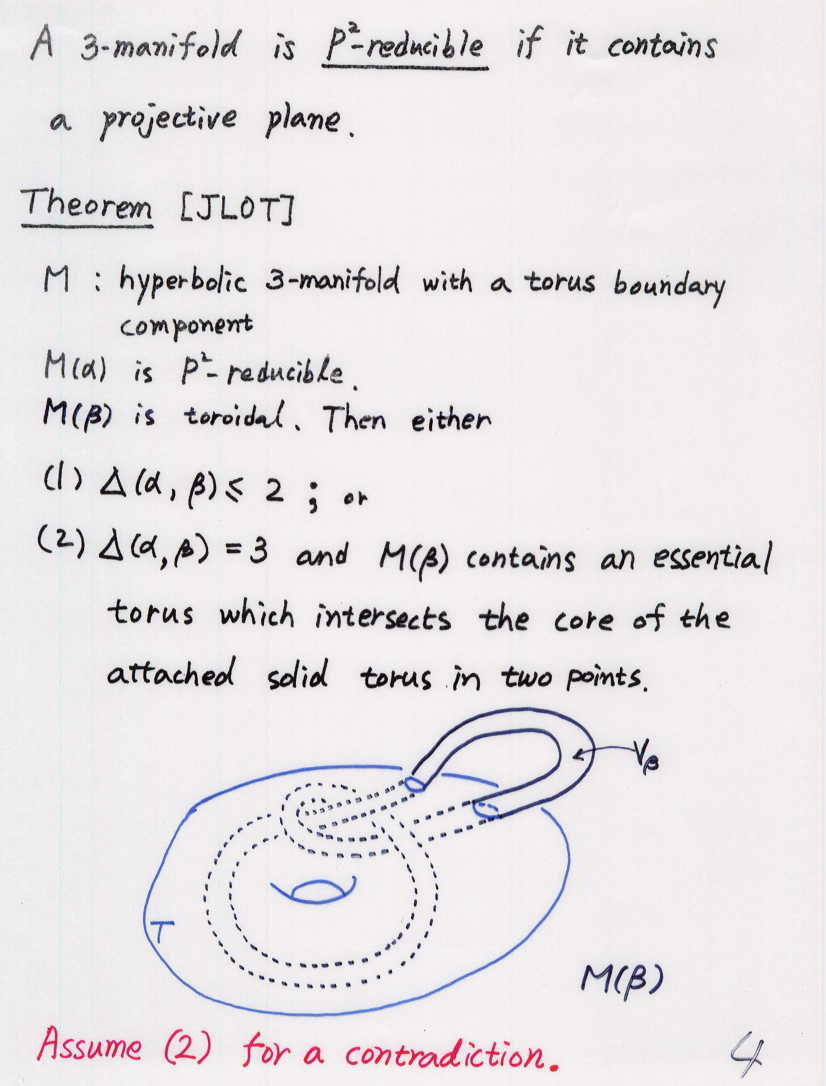 A 3-manifold is P²-reducible if it contains
a projective plane.
Theorem [JLOT]
M : hyperbolic 3-manifold with a torus boundary
component
M(α) is P²-reducible.
M(β) is toroidal. Then either
(1) Δ(α, β) ≤ 2 ; or
(2) Δ(α, β) = 3 and M(β) contains an essential
torus which intersects the core of the
attached solid torus in two points.
Vβ
T
M(β)
Assume (2) for a contradiction.
4